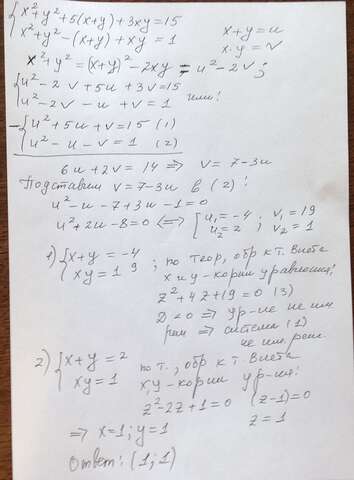 { x²+y²+5(x+y)+3xy=15
x²+y²-(x+y)+xy=1
x+y=u
x·y=v
x²+y²=(x+y)²-2xy=u²-2v;
{ u²-2v+5u+3v=15
u²-2v-u+v=1 или!
-{ u²+5u+v=15 (1)
u²-u-v=1 (2)
6u+2v=14 => v=7-3u
Подставим v=7-3u в (2):
u²-u-7+3u-1=0
u²+2u-8=0 <=> [ u₁=-4; v₁=19
u₂=2; v₂=1
1) { x+y=-4
xy=19 ; по теор, обр к т. Виета
x и y-корни уравнения:
z²+4z+19=0 (3)
D<0 => ур-ие не им.
реш => система (1)
не им. реш.
2) { x+y=2
xy=1
по т., обр к т. Виета
x,y-корни ур-ия:
z²-2z+1=0 (z-1)=0
=> x=1; y=1 z=1
Ответ: (1;1)